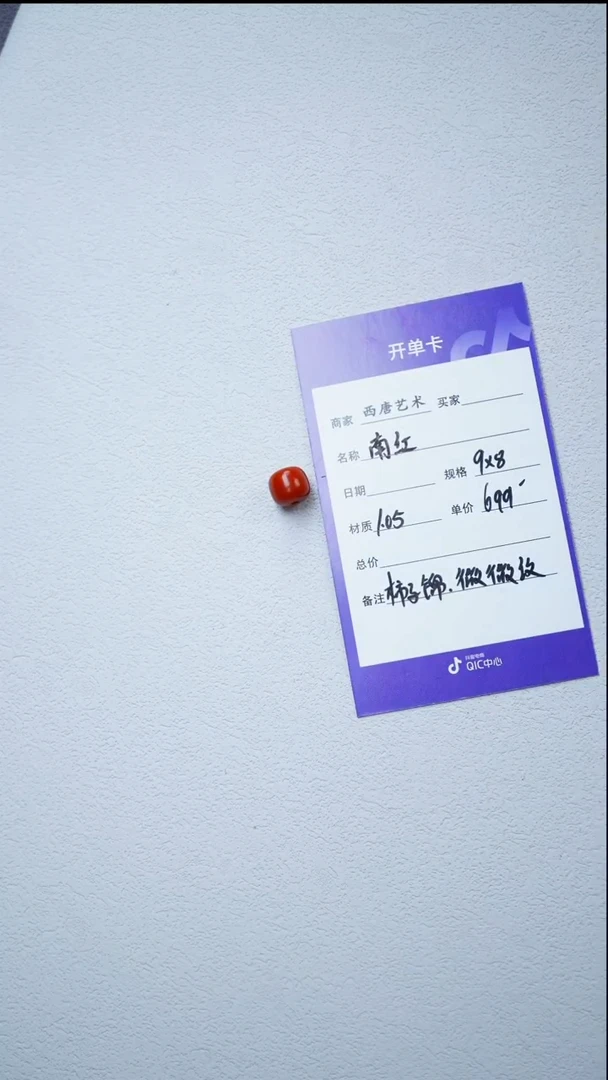 开单卡
商家 西唐艺术 买家
名称 南红
日期 规格 9x8
材质 1.05 单价 699-
总价
备注 柿子锦.微微纹
抖音电商
QIC中心